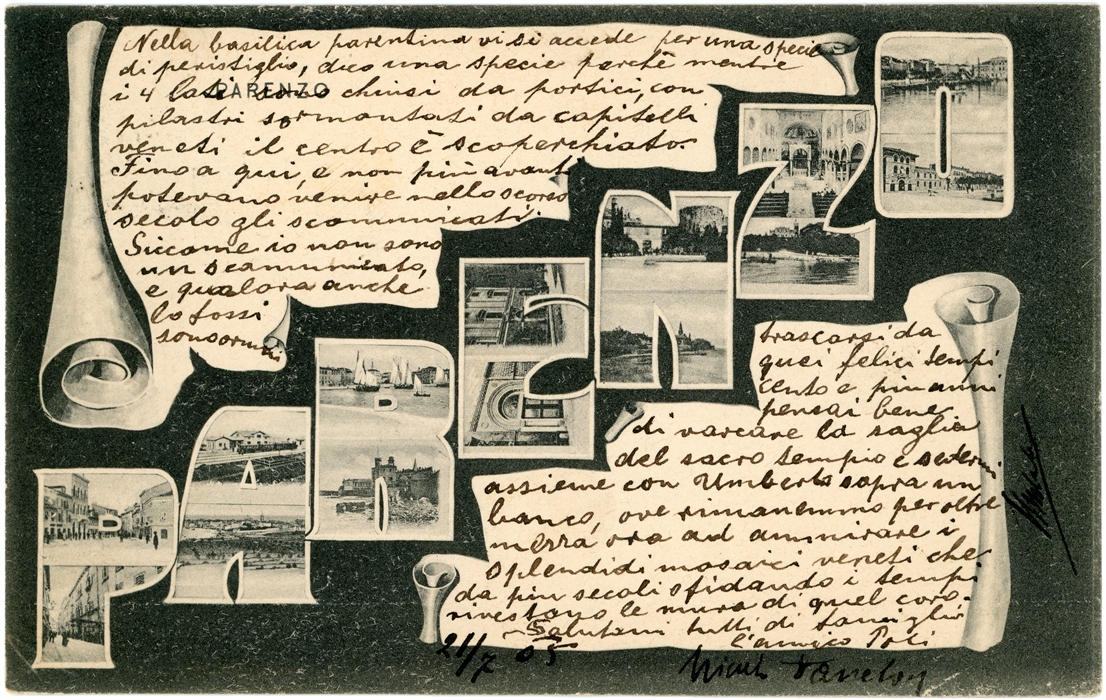 Nella basilica parentina vi si accede per una specie
di peristiglio, dico una specie perchè mentre
i 4 lati sono chiusi da portici, con
PARENZO
pilastri sormontati da capitelli
veneti il centro è scoperchiato.
Fino a qui, e non più avanti
potevano venire nello scorso
secolo gli scomunicati.
Siccome io non sono
un scamunicato,
e qualora anche
lo fossi
PARENZO
trascorsi da
quei felici tempi
cento e più anni
pensai bene
di varcare la soglia
del sacro tempio e sedermi
assieme con Umberto sopra un
banco, ove rimanemmo per oltre
mezza ora ad ammirare i
splendidi mosaici veneti che
da più secoli sfidando i tempi
rivestono le mura di quel coro.
Salutami tutti di famiglia
l'amico
21/7 05